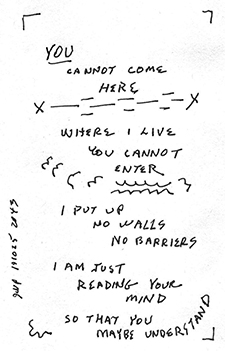 YOU
CANNOT COME
HERE
X X
WHERE I LIVE
YOU CANNOT
ENTER
I PUT UP
NO WALLS
NO BARRIERS
I AM JUST
READING YOUR
MIND
SO THAT YOU
MAYBE UNDERSTAND